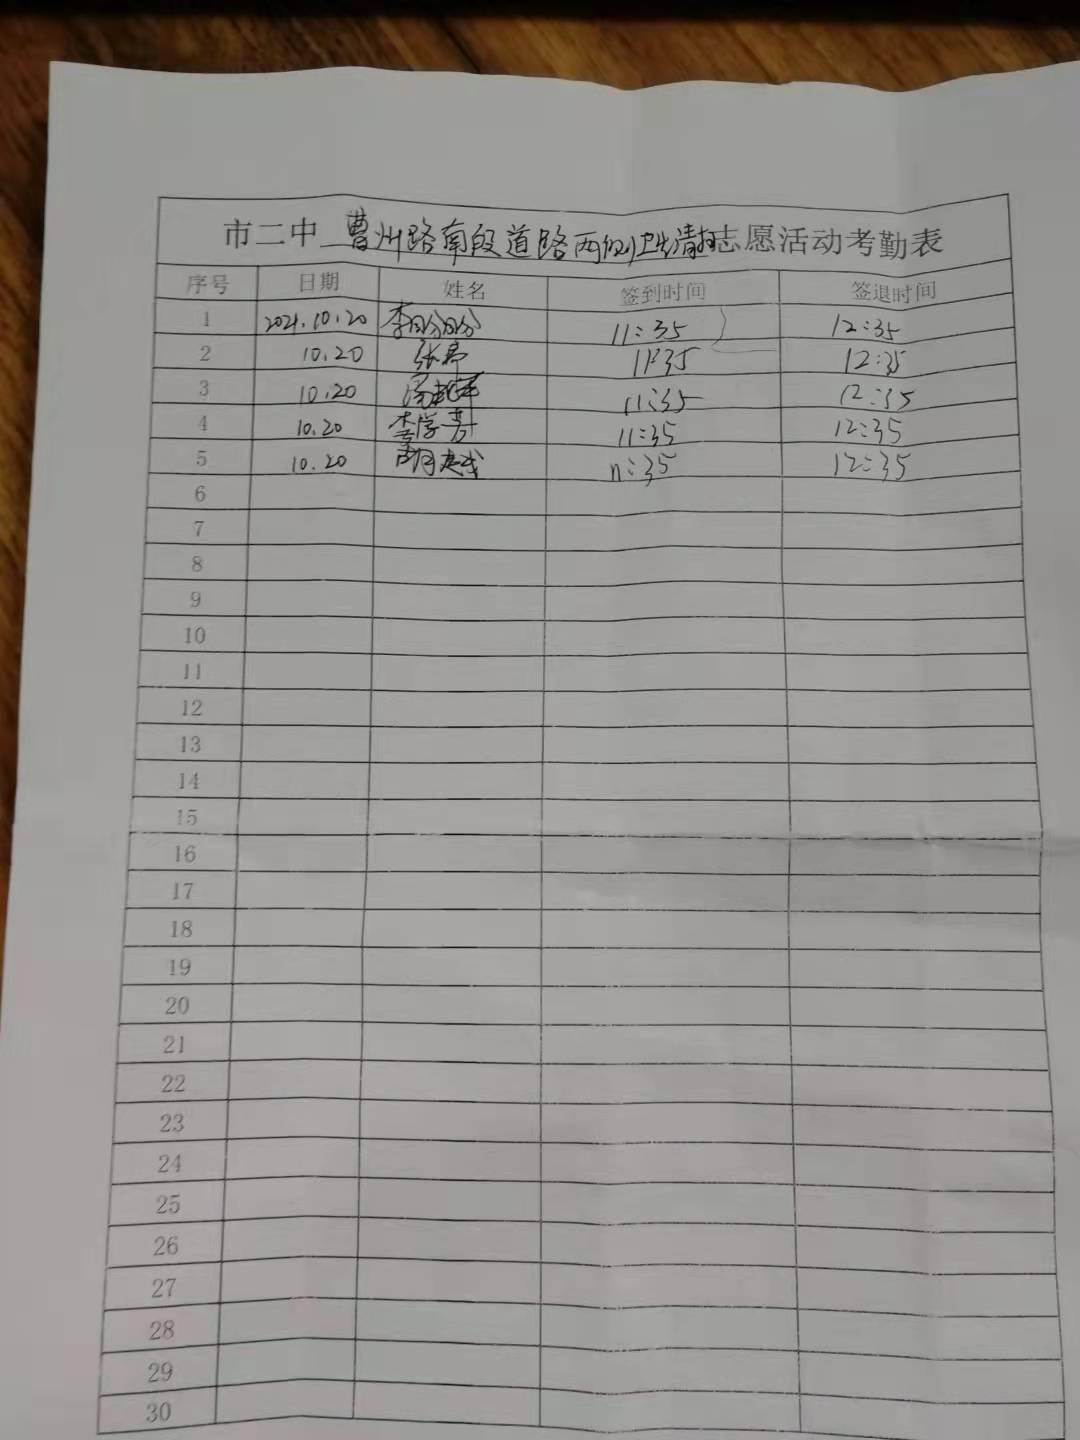 市二中 曹州路南段道路两侧卫生清扫志愿活动考勤表
序号 日期 姓名 签到时间 签退时间
1 2021.10.20 李盼盼 11:35 12:35
2 10.20 张 11:35 12:35
3 10.20 11:35 12:35
4 10.20 李学芳 11:35 12:35
5 10.20 11:35 12:35
6
7
8
9
10
11
12
13
14
15
16
17
18
19
20
21
22
23
24
25
26
27
28
29
30